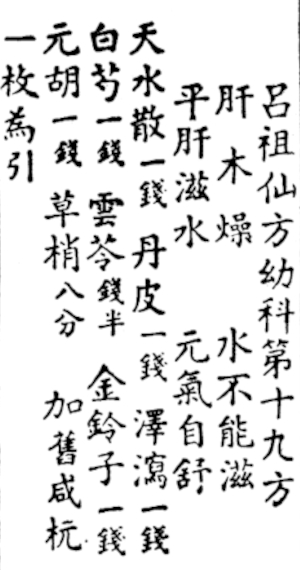 呂祖仙方幼科第十九方
肝木燥 水不能滋
平肝滋水 元氣自舒
天水散一錢 丹皮一錢 澤瀉一錢
白芍一錢 雲苓錢半 金鈴子一錢
元胡一錢 草梢八分 加舊咸杬
一枚為引